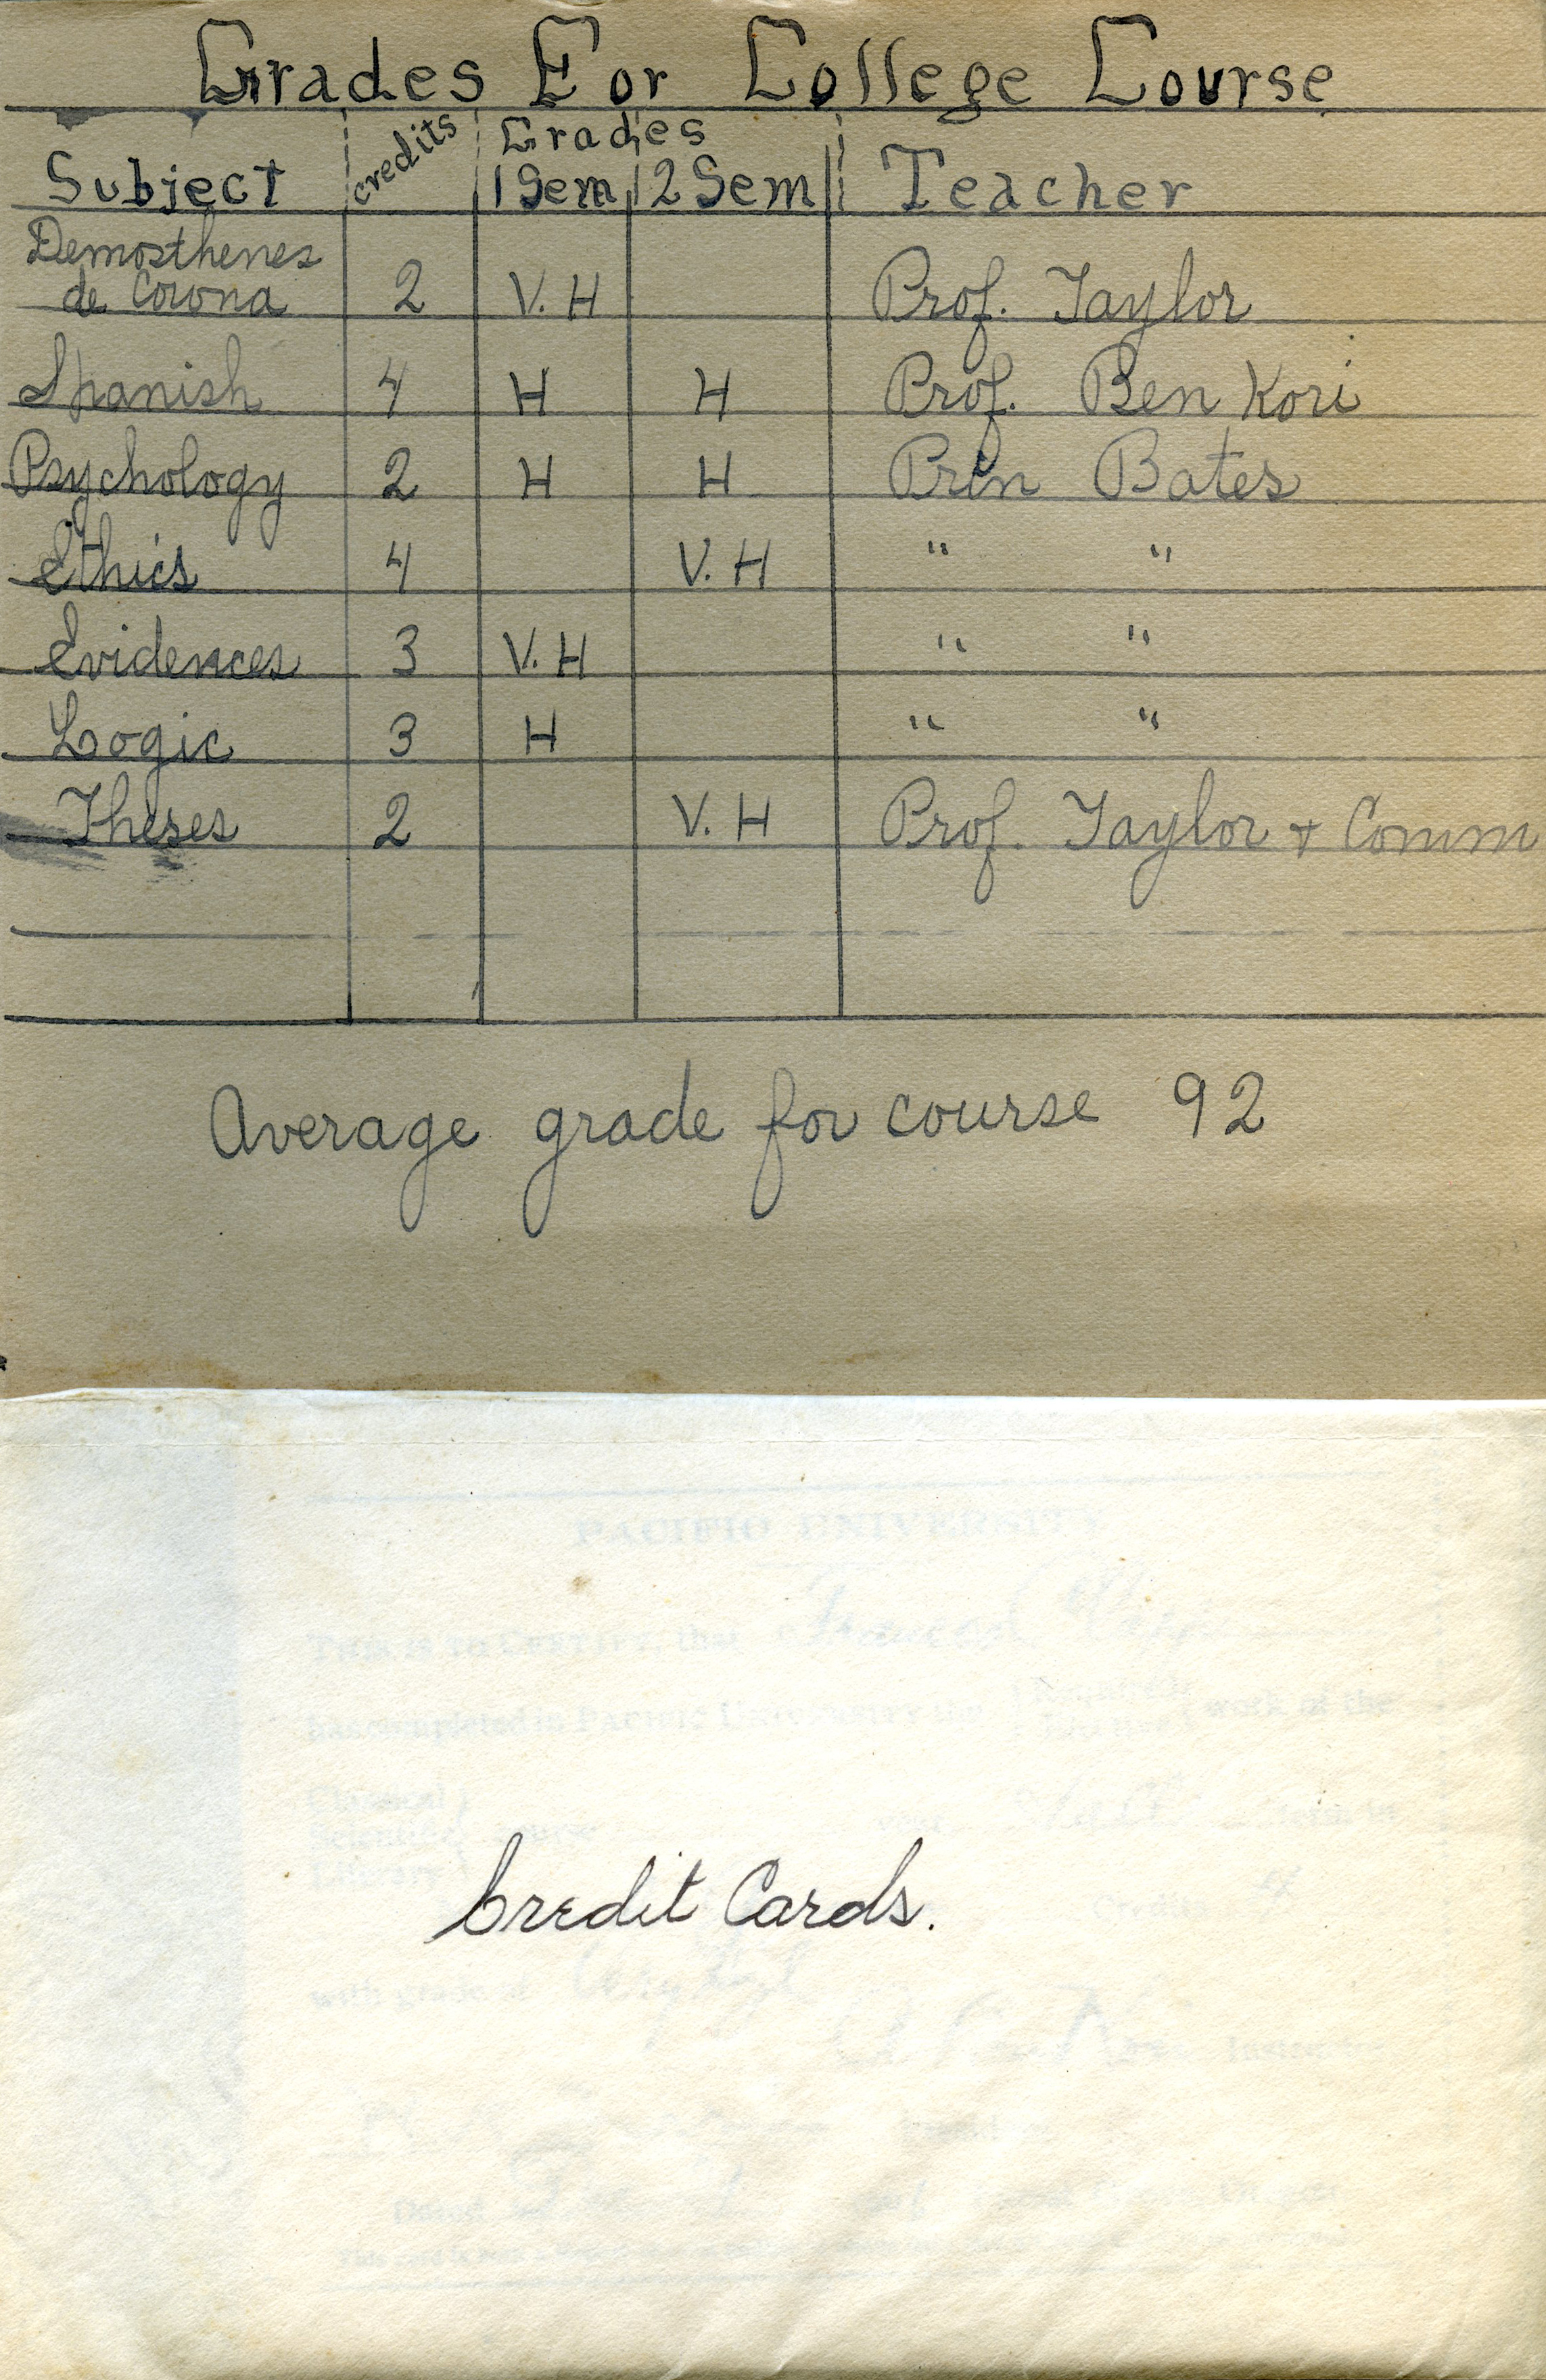 Grades For College Course
Subject credits Grades 1 Sem 2 Sem Teacher
Demosthenes
de Corona 2 V. H Prof. Taylor
Spanish 4 H H Prof. Ben Kori
Psychology 2 H H Prin Bates
Ethics 4 V. H " "
Evidences 3 V. H " "
Logic 3 H " "
Theses 2 V. H Prof. Taylor + Comm
Average grade for course 92
PACIFIC UNIVERSITY
THIS IS TO CERTIFY, that
has completed in PACIFIC UNIVERSITY the work of the
Classical
Scientific course year
Literary
Credit Cards.
with grade of